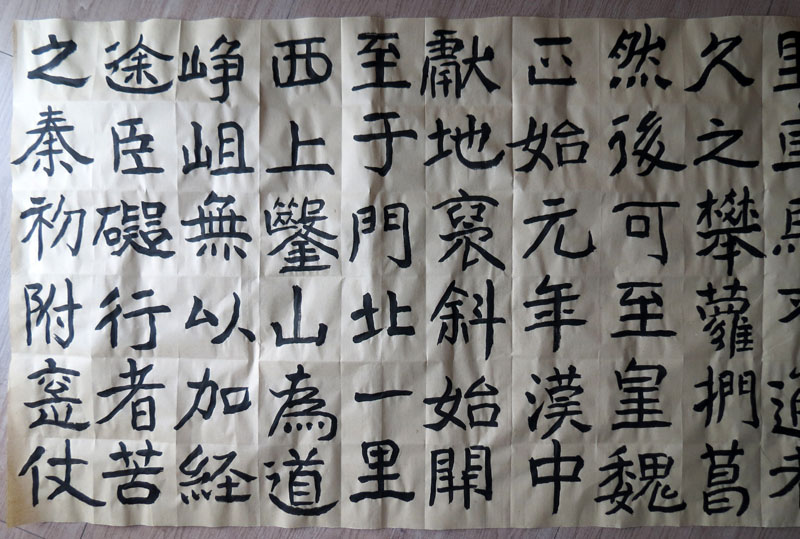 里車馬不通者
久之攀蘿捫葛
然後可至皇魏
正始元年漢中
獻地褒斜始開
至于門北一里
西上鑿山為道
崢岨無以加経
途臣礙行者苦
之秦初附寔仗